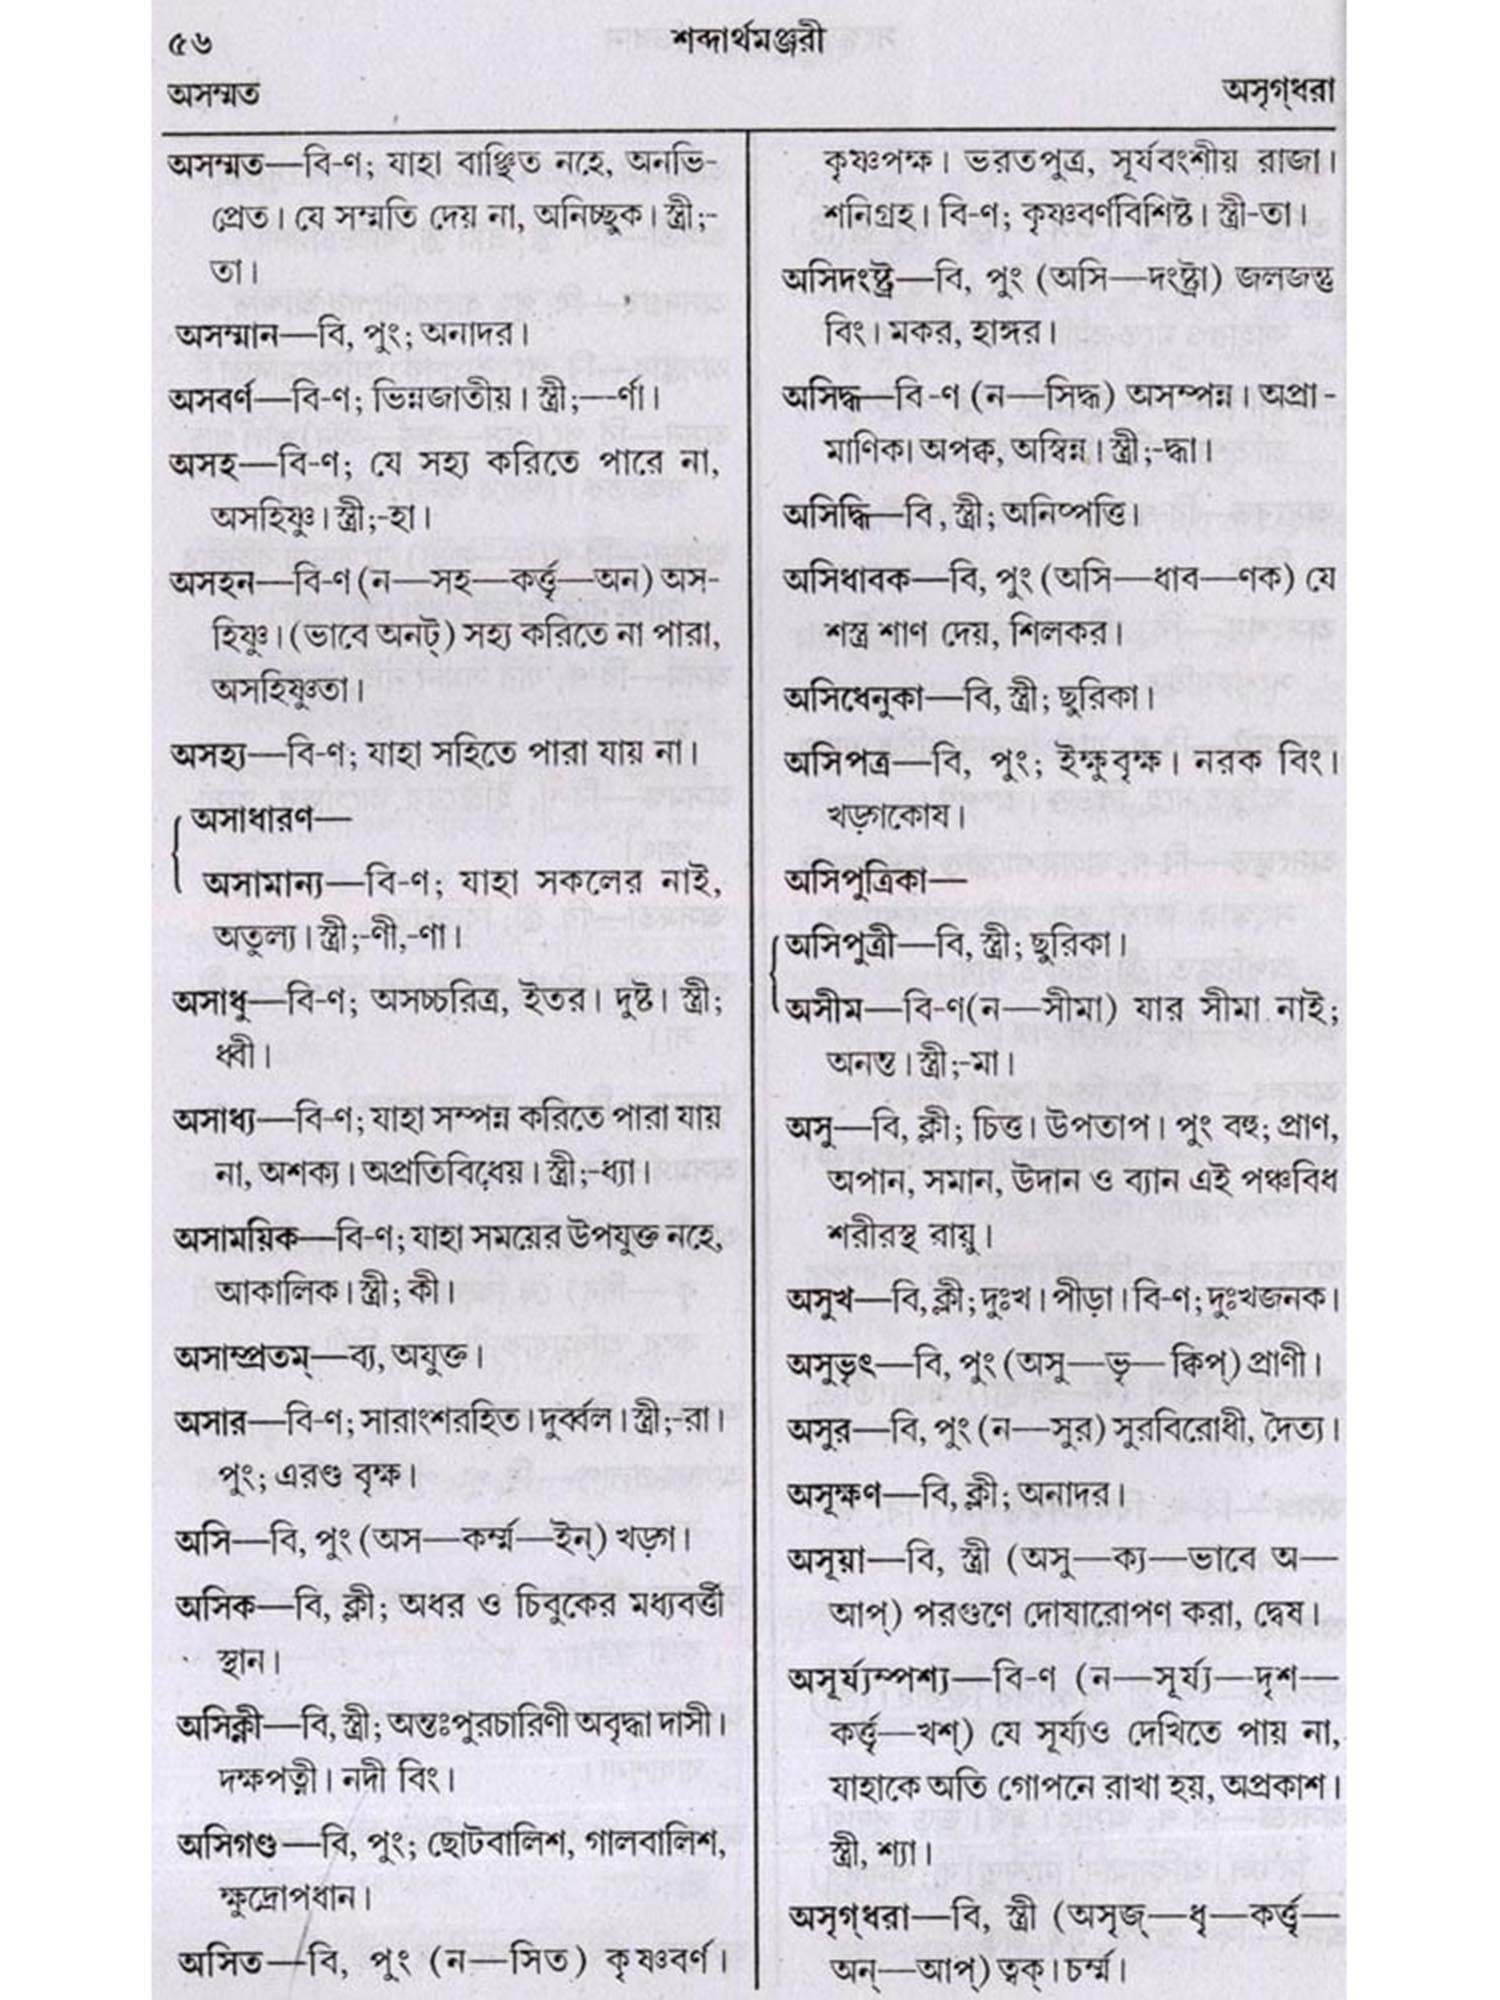 ৫৬
শব্দার্থমঞ্জরী
অসম্মত
অসৃগ্‌ধরা
অসম্মত—বি-ণ; যাহা বাঞ্ছিত নহে, অনভি-
প্রেত। যে সম্মতি দেয় না, অনিচ্ছুক। স্ত্রী;-
তা।
অসম্মান—বি, পুং; অনাদর।
অসবর্ণ—বি-ণ; ভিন্নজাতীয়। স্ত্রী;—-র্ণা।
অসহ—বি-ণ; যে সহ্য করিতে পারে না,
অসহিষ্ণু। স্ত্রী;-হা।
অসহন—বি-ণ (ন—সহ—কর্ত্তৃ—অন) অস-
হিষ্ণু। (ভাবে অনট্) সহ্য করিতে না পারা,
অসহিষ্ণুতা।
অসহ্য—বি-ণ; যাহা সহিতে পারা যায় না।
অসাধারণ—
অসামান্য—বি-ণ; যাহা সকলের নাই,
অতুল্য। স্ত্রী;-ণী,-ণা।
অসাধু—বি-ণ; অসচ্চরিত্র, ইতর। দুষ্ট। স্ত্রী;
ধ্বী।
অসাধ্য—বি-ণ; যাহা সম্পন্ন করিতে পারা যায়
না, অশক্য। অপ্রতিবিধেয়। স্ত্রী;-ধ্যা।
অসাময়িক—বি-ণ; যাহা সময়ের উপযুক্ত নহে,
আকালিক। স্ত্রী; কী।
অসাম্প্রতম্—ব্য, অযুক্ত।
অসার—বি-ণ; সারাংশরহিত। দুর্ব্বল। স্ত্রী;-রা।
পুং; এরণ্ড বৃক্ষ।
অসি—বি, পুং (অস—কর্ম্ম—ইন্) খড়্গ।
অসিক—বি, ক্লী; অধর ও চিবুকের মধ্যবর্ত্তী
স্থান।
অসিক্লী—বি, স্ত্রী; অন্তঃপুরচারিণী অবৃদ্ধা দাসী।
দক্ষপত্নী। নদী বিং।
অসিগণ্ড—বি, পুং; ছোটবালিশ, গালবালিশ,
ক্ষুদ্রোপধান।
অসিত—বি, পুং (ন—সিত) কৃষ্ণবর্ণ।
কৃষ্ণপক্ষ। ভরতপুত্র, সূর্যবংশীয় রাজা।
শনিগ্রহ। বি-ণ; কৃষ্ণবর্ণবিশিষ্ট। স্ত্রী-তা।
অসিদংষ্ট্র—বি, পুং (অসি—দংষ্ট্রা) জলজন্তু
বিং। মকর, হাঙ্গর।
অসিদ্ধ—বি-ণ (ন—সিদ্ধ) অসম্পন্ন। অপ্রা-
মাণিক। অপক্ব, অস্বিন্ন। স্ত্রী;-দ্ধা।
অসিদ্ধি—বি, স্ত্রী; অনিষ্পত্তি।
অসিধাবক—বি, পুং (অসি—ধাব—ণক) যে
শস্ত্র শাণ দেয়, শিলকর।
অসিধেনুকা—বি, স্ত্রী; ছুরিকা।
অসিপত্র—বি, পুং; ইক্ষুবৃক্ষ। নরক বিং।
খড়্গকোষ।
অসিপুত্রিকা—
অসিপুত্রী—বি, স্ত্রী; ছুরিকা।
অসীম—বি-ণ(ন—সীমা) যার সীমা নাই;
অনন্ত। স্ত্রী;-মা।
অসু—বি, ক্লী; চিত্ত। উপতাপ। পুং বহু; প্রাণ,
অপান, সমান, উদান ও ব্যান এই পঞ্চবিধ
শরীরস্থ রায়ু।
অসুখ—বি, ক্লী; দুঃখ। পীড়া। বি-ণ; দুঃখজনক।
অসুভৃৎ—বি, পুং (অসু—ভৃ— ক্বিপ্) প্রাণী।
অসুর—বি, পুং (ন—সুর) সুরবিরোধী, দৈত্য।
অসূক্ষণ—বি, ক্লী; অনাদর।
অসূয়া—বি, স্ত্রী (অসু—ক্য—ভাবে অ—
আপ্) পরগুণে দোষারোপণ করা, দ্বেষ।
অসূর্য্যম্পশ্য—বি-ণ (ন—সূর্য্য—দৃশ—
কর্ত্তৃ—খশ্) যে সূর্য্যও দেখিতে পায় না,
যাহাকে অতি গোপনে রাখা হয়, অপ্রকাশ।
স্ত্রী, শ্যা।
অসৃগ্‌ধরা—বি, স্ত্রী (অসৃজ্—ধৃ—কর্ত্তৃ—
অন্—আপ্) ত্বক্। চর্ম্ম।